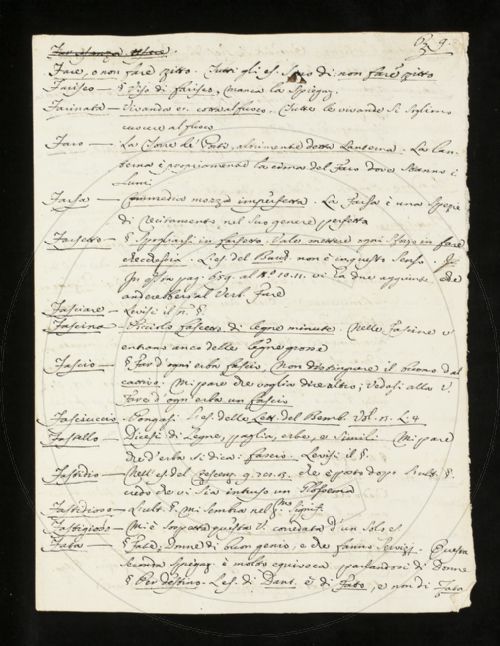 Far senza
Fare, o non fare zitto. Tutti gli es. sono di non fare zitto
Fariseo — § Viso di fariseo, manca la Spiegaz.
Farinata — Vivanda ec. cotta al fuoco. Tutte le vivande si sogliono
cuocere al fuoco
Faro — La Torre de' Porti, altrimenti detta Lanterna. La lan-
terna è propriamente la cima del Faro dove stanno i
lumi
Farsa — Commedia mozza imperfetta. La Farsa è una spezie
di recitamento nel suo genere perfetta
Farsetto — § Spogliarsi in farsetto. Vale mettere ogni sforzo in fare
checchessia. L'es. del non è in questo senso.
pag. 659. al N° 10.11. vi la due
andrebbersi al Verb. Fare
Fasciare — Levisi il n. §
Fascina — Piccolo fascetto di legne minute. Nelle Fascine v'
entrano anco delle legne grosse
Fascio — § Far d'ogni erba fascio, Non distinguere il buono dal
cattivo. Mi pare che voglia dire altro; vedasi alla V.
Fare d'ogni erba un fascio
Fasciuccio — Pongasi l'es. delle Lett. del Bemb. Vol. L. 4
Fastello — Dicesi di Legne, paglia, erbe, e simili. Mi pare
che d'erba si dica: fascio. Levisi il §.
Fastidio — Nell'es. del Cresc. 9. che è posto dopo l'ult. §.
credo che vi sia intruso un Glossema
Fastidioso — L'ult. § mi sembra nel signif.
Fastigioso — Mi è sospetta questa V. corredata d'un solo es.
Fata — § Fate, Donne di buon genio, e che fanno servigi. Questa
seconda Spiegaz. è molto equivoca parlandosi di Donne
§ Per Destino. L'es. di Dant. è di Fato, e non di Fata